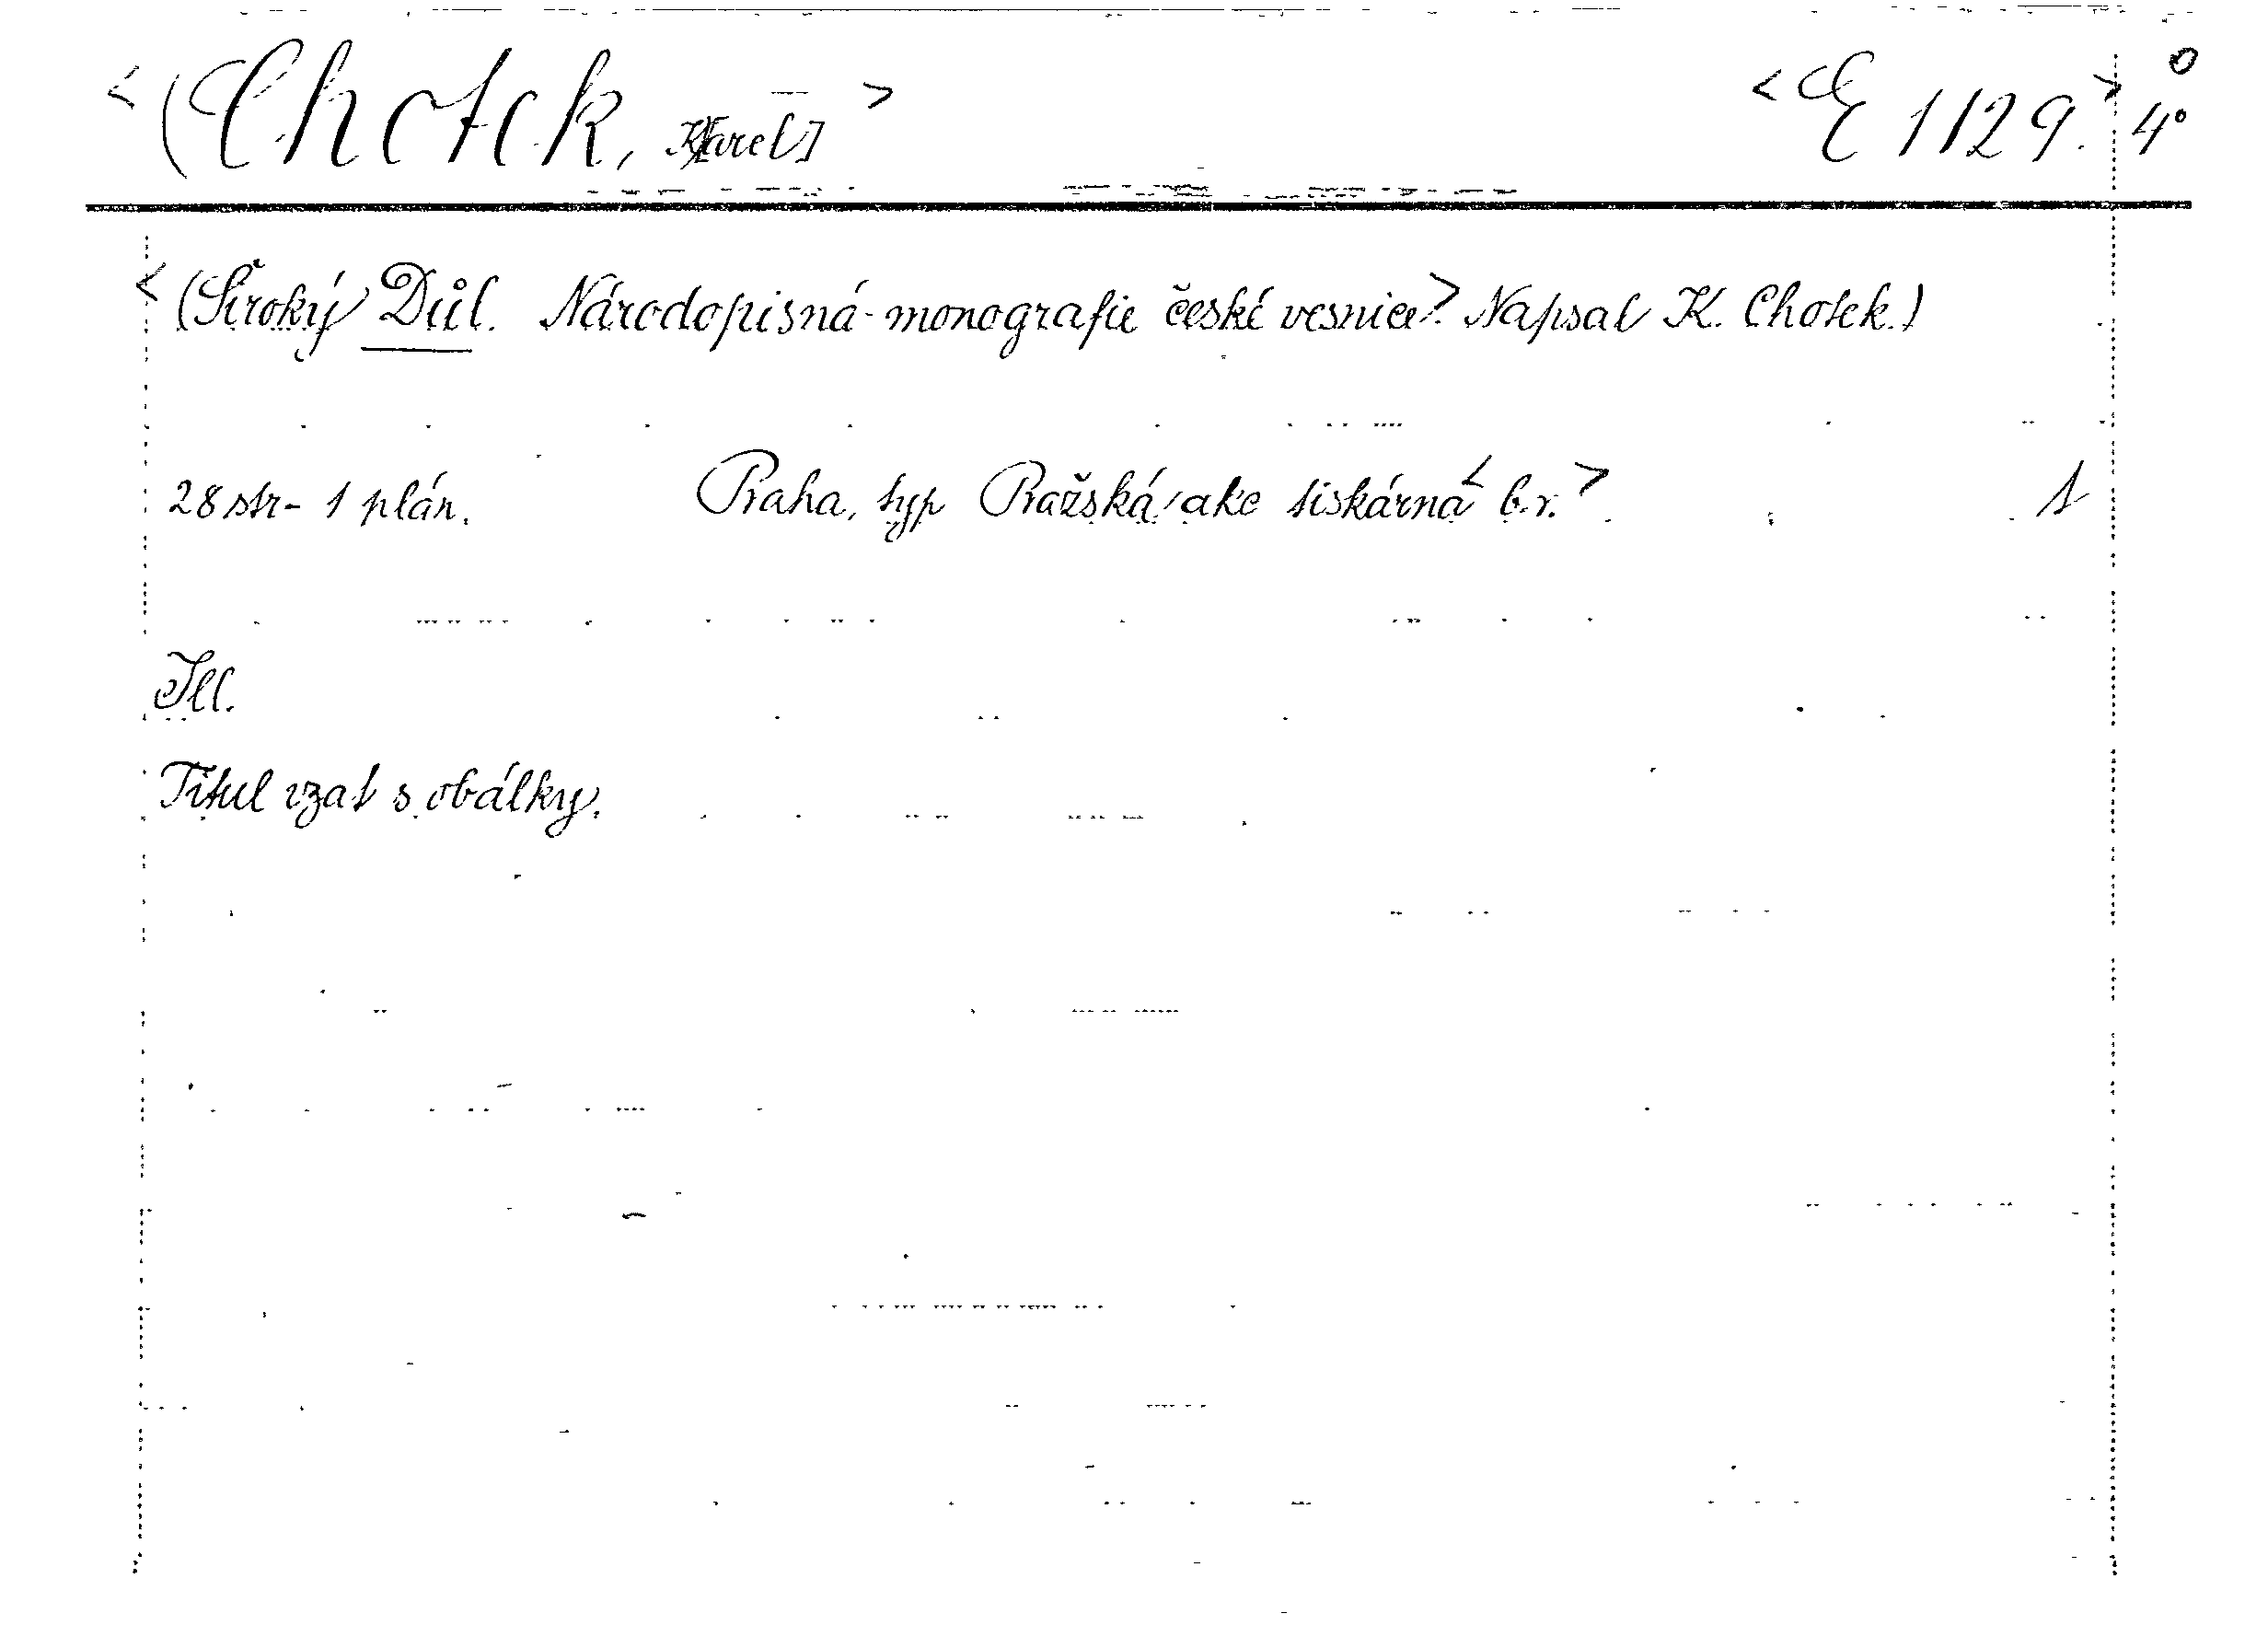 <(Chotek, K[arel]> <E 1129.> 4°
<(Široký Důl. Národopisná monografie české vesnice.> Napsal K. Chotek.)
28 str - 1 plán. Praha, typ Pražská ake tiskárna <b.r.> 1
Ill.
Titul vzat s obálky.